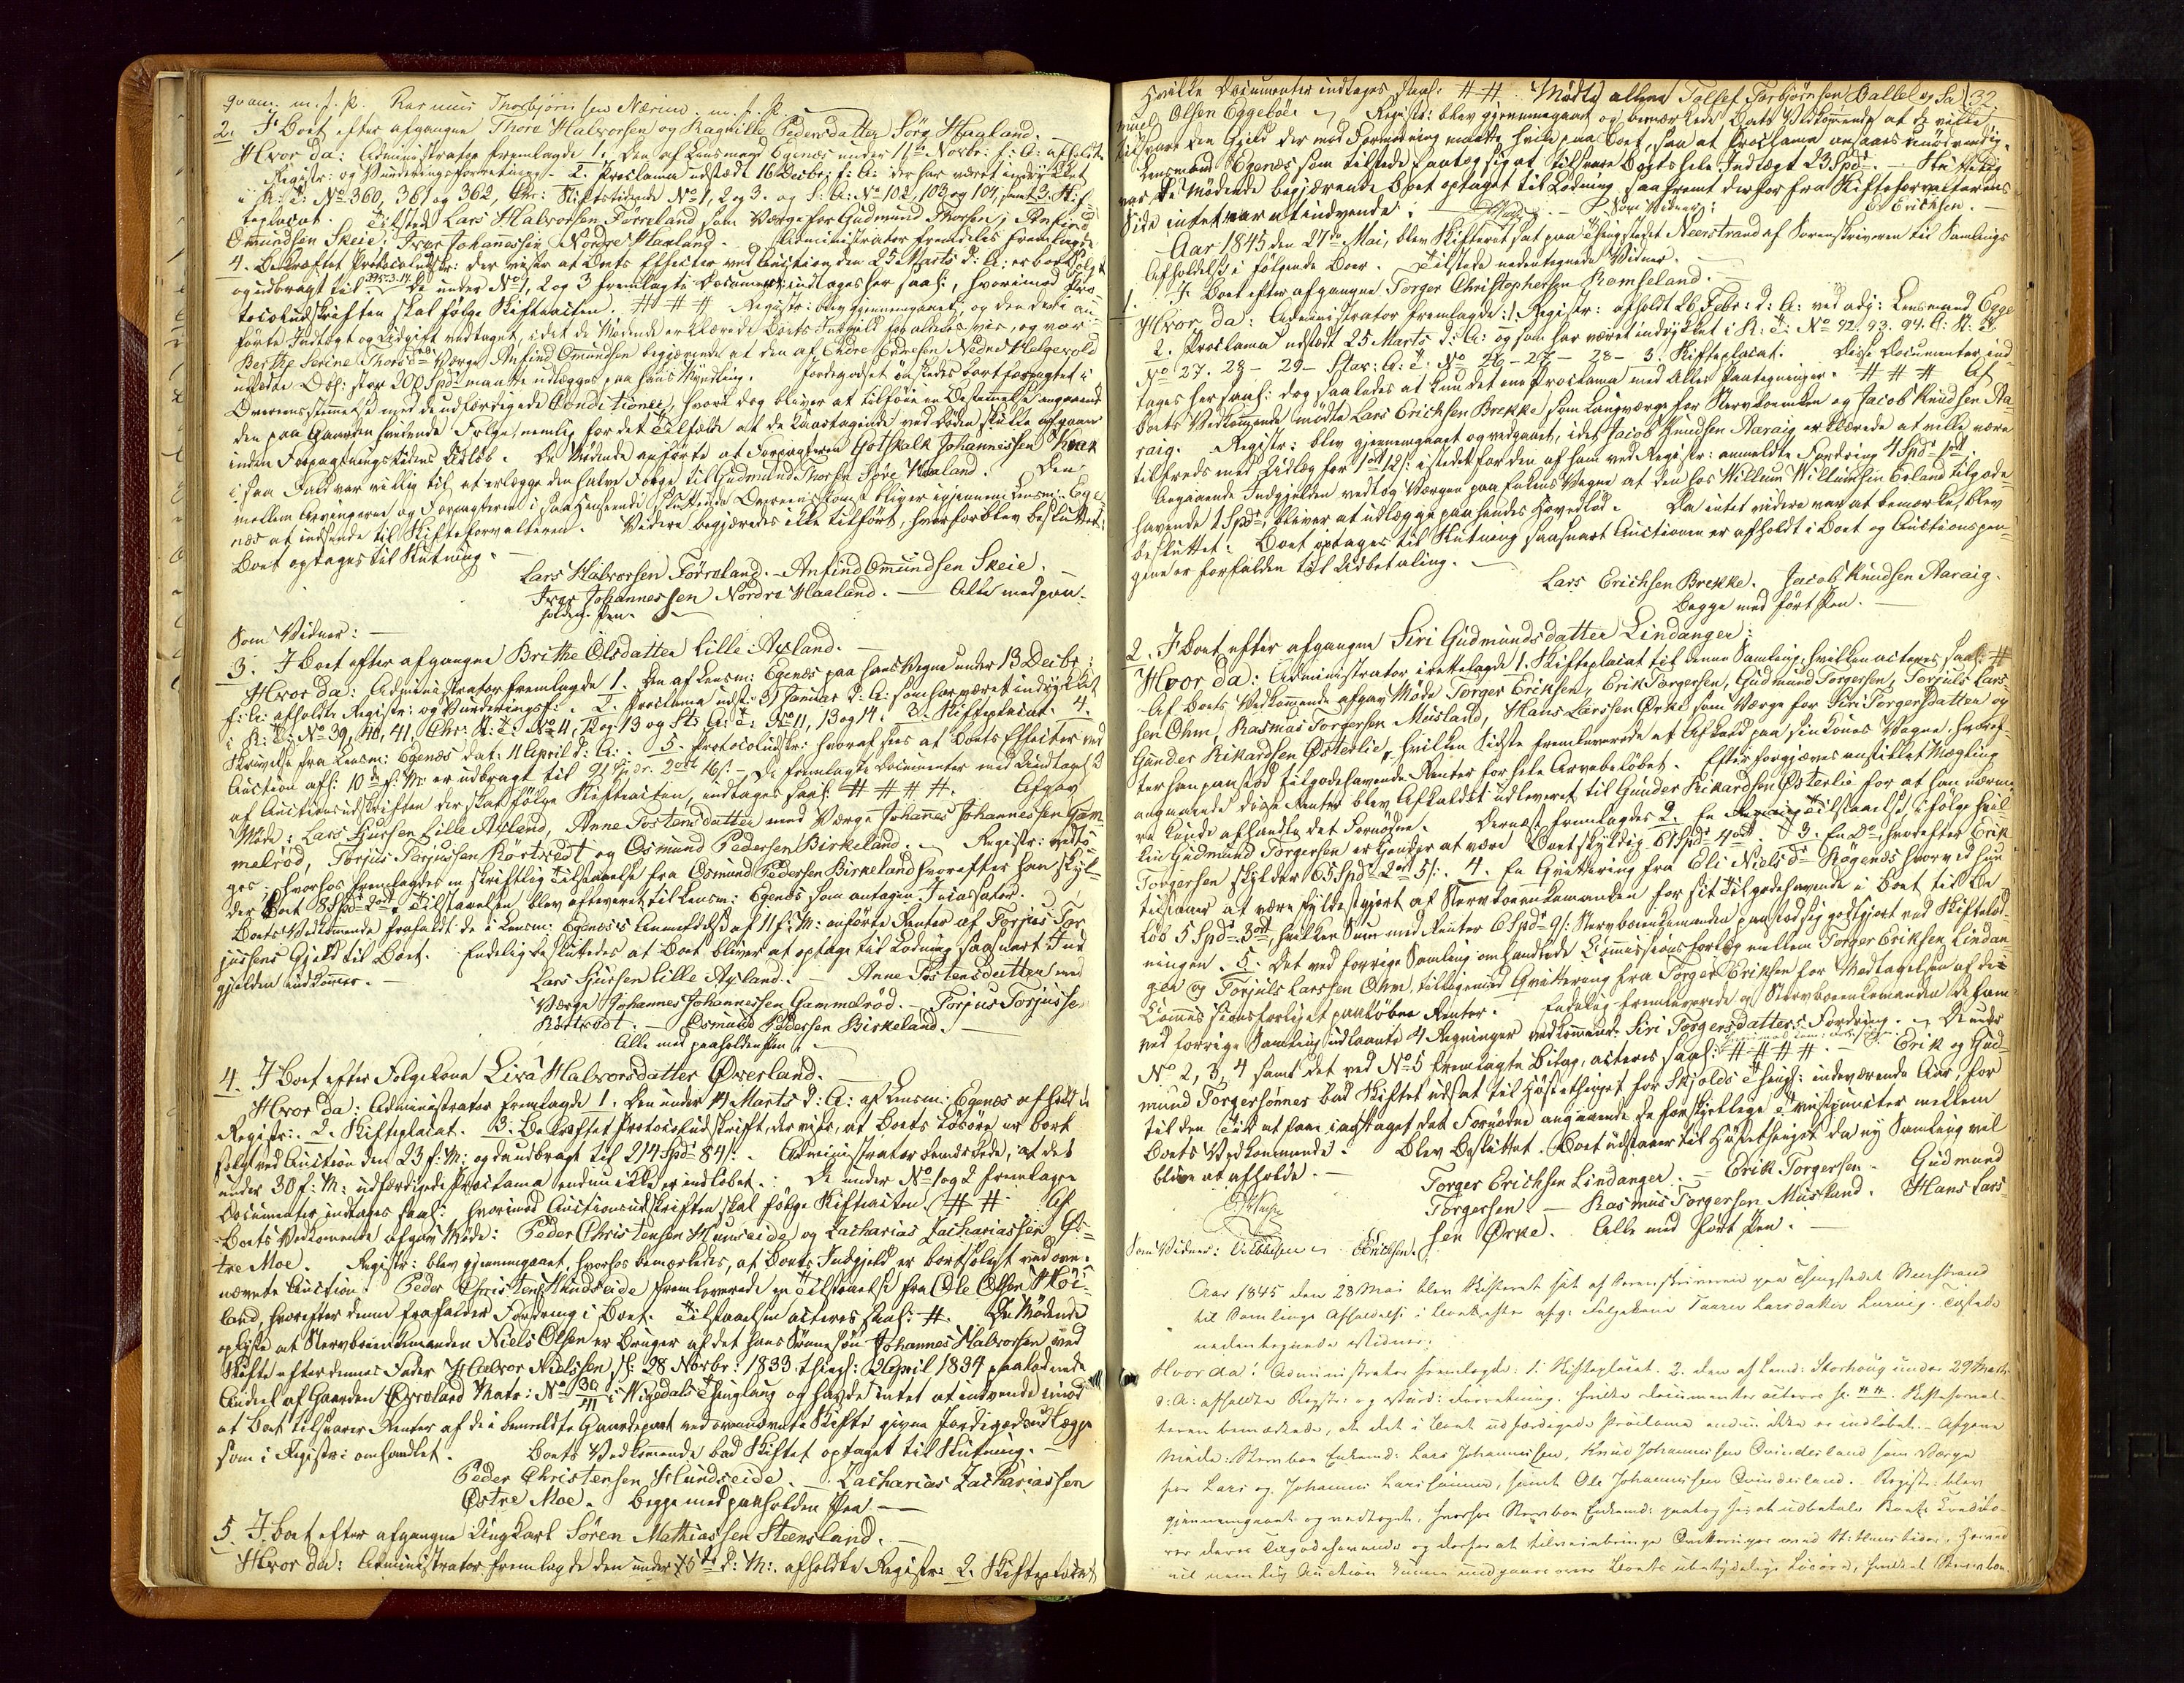 qvam. m. f. P. Rasmus Thorbjørnsen Nærim. m. f. P.
2. I Boet efter afgangne Thore Halvorsen og Ragnille Pedersdatter Søre Haaland.
Hvor da: Administrator fremlagde 1. Den af Lensmand Egenæs under 11te Novbr: f: A: afholdte
Registr: og Vurderingsforretning. 2. Proclama udstædt 16 Decbr: f: A: der har været indrykket
i R: T: No 360, 361 og 362, Chr: Stiftstidende No 1, 2 og 3. og S: A: No 102, 103 og 104, samt 3. Skif-
teplacat. Tilstede Lars Halvorsen Førreland som Værge for Gudmund Thorsen; Anfind
Omundsen Skeie; Iver Johannessen Nordre Haaland. Administrator fremdeles fremlagde
4. Bekræftet Protocoludskr: der viser at Boets Effecter ved Auction den 25 Marts d: A: er bortsolgt
og udbragt til De under No 1, 2 og 3 fremlagte Documenter indtages her saal:, hvorimod Pro-
tocoludskriften skal følge Skifteacten. # # # Registr: blev gjennemgaaet, og den deri an-
førte Indtægt og Udgift vedtaget, idet de Mødende erklærede Boets Indgjæld for aldeles vis, og var
Berthe Serine Thorsd: Værge Anfind Omundsen begjærende at den af Endre Endresen Nedre Helgevold
udstedte Obl: stor 200 Spd maatte udlægges paa hans Myndling. Jordegodset saaledes bortforpagtet i
Overensstemmelse med de udfærdigede Conditioner, hvori dog bliver at tilføie en Bestemmelse angaaende
den paa Gaarden hvilende Folge, nemlig for det Tilfælde at de Kaartagende ved Døden skulle afgaae
inden Forpagtningstidens Udløb. De Mødende anførte at Forpagteren Gotskalk Johannessen
i saa Fald var villig til at erlægge den halve Folge til Gudmund Thorsen Søre Haaland. Den
mellem Arvingerne og Forpagteren i saa Henseende sluttende Overenskomst bliver igjennem Lensm: Ege-
næs at indsende til Skifteforvalteren. Videre begjæredes ikke tilført, hvorfor blev besluttet:
Boet optages til Slutning.
Lars Halvorsen Førreland. Anfind Omundsen Skeie.
Iver Johannessen Nordre Haaland. Alle med paa-
holden Pen.
Som Vidner:
3. I Boet efter afgangne Brithe Olsdatter Lille Axland.
Hvor da: Administrator fremlagde 1. Den af Lensm: Egenæs paa hans Vegne under 13 Decbr:
f: A: afholdte Registr: og Vurderingsf: 2. Proclama udst: 31 Januar d: A: som har været indrykket
i R: T: No 39, 40, 41, Chr: St: T: No 11, 12 og 13 og St: A: T: No 11, 13 og 14. 3. Skifteplacat. 4.
Skrivelse fra Lensm: Egenæs dat: 11 April d: A:. 5. Protocoludskr: hvoraf sees at Boets Effecter ved
Auction afh: 10de f: M: er udbragt til 91 Spdr. 2 ort 16 s. De fremlagte Documenter med Undtagelse
af Auctionsudskriften der skal følge Skifteacten, indtages saal: # # # #. Afgav
Møde: Lars Sjursen Lille Axland, Anne Tostensdatter med Værge Johannes Johannessen Gam-
melrød, Torjus Torjussen Kørtvedt og Osmund Pedersen Birkeland. Registr: vedto-
ges; hvorhos fremlagdes en skriftlig Tilstaaelse fra Osmund Pedersen Birkeland hvorefter han skyl-
der Boet 8 Spd 2 ort. Tilstaaelsen blev afleveret til Lensm: Egenæs som antagen Incassator.
Boets Vedkommende frafaldt de i Lensm: Egenæs's Anmeldelse af 11 f: M: anførte Renter af Torjus Tor-
jussens Gjæld til Boet. Endelig besluttedes at Boet bliver at optage til Lodning saasnart Ind-
gjælden indkommer.
Lars Sjursen Lille Axland. Anne Tostensdatter med
Værge Johannes Johannessen Gammelrød. Torjus Torjussen
Kørtvedt. Osmund Pedersen Birkeland.
Alle med paaholden Pen.
4. I Boet efter Folgekone Liva Halvorsdatter Øverland.
Hvor da: Administrator fremlagde 1. Den under 14 Marts d: A: af Lensm: Egenæs afholdte
Registr:. 2. Skifteplacat. 3. Bekræftet Protocoludskrift, der viser, at Boets Løsøre er bort-
solgt ved Auction den 23 f: M: og da udbragt til 214 Spd 84 s. Administrator bemærkede, at det
under 30 f: M: udfærdigede Proclama endnu ikke er indløbet. De under No 1 og 2 fremlagte
Documenter indtages saal: hvorimod Auctionsudskriften skal følge Skifteacten. # #. Af
Boets Vedkommende afgav Møde: Peder Christensen Hundseide og Zacharias Zachariassen Øs-
tre Moe. Registr: blev gjennemgaaet, hvorhos bemærkedes, at Boets Indgjæld er bortsolgt ved oven-
nævnte Auction. Peder Christens: Hundseide fremleverede en Tilstaaelse fra Ole Olsen Høi-
land, hvorefter denne frafalder Fordring i Boet. Tilstaaelsen acteres saal: #. De Mødende
oplyste at Stervboenkemanden Niels Olsen er Bruger af det hans Sønnesøn Johannes Halvorsen ved
Skifte efter dennes Fader Halvor Nielssen, sl: 28 Novbr: 1833. thingl: 2 April 1834 paalodnede
Andeel af Gaarden Øverland Matr: No 30 i Vigedals Thinglaug og havde intet at indvende imod
at Boet tilsvarer Renter af de i bemeldte Gaardepart ved ovennævnte Skifte givne Jordegodsudlægge
som i Registr: omhandlet. Boets Vedkommende bad Skiftet optaget til Slutning.
Peder Christensen Hundseide. Zacharias Zachariassen
Østre Moe. Begge med paaholden Pen.
5. I Boet efter afgangne Ungkarl Søren Mathiassen Steensland.
Hvor da: Administrator fremlagde den under 15de d: M: afholdte Registr: 2. Skifteplacat
32
hvilke Documenter indtages saal: # #. Mødte alene Tollef Torbjørnsen Ballel og Sa-
muel Olsen Eggebøe. Registr: blev gjennemgaaet og bemærkede Boets Vedkommende at de ville
tilsvare den Gjæld der mod Formodning maatte hvile paa Boet, saa at Proclama ansaaes unødvendig.
Lensmand Egenæs som tilstede paatog sig at tilsvare Boets hele Indtægt 23 Spd. Hu
var de Mødende begjærende Boet optaget til Lodning saafremt derfor fra Skifteforvalterens
Side intet var at indvende. Som Vidner: E. Erichsen.
Aar 1845 den 27de Mai, blev Skifteret sat paa Thingstedet Neerstrand af Sorenskriveren til Samlings
Afholdelse i følgende Boer. Tilstede nedentegnede Vidner.
1. I Boet efter afgangne Torger Christophersen Romseland.
Hvor da: Administrator fremlagde 1. Registr: afholdt 26 Febr: d: A: ved adj: Lensmand Egge
2. Proclama udstædt 25 Marts d: A: og som har været indrykket i R: T: No 92. 93. 94. C: St: T:
No 27. 28 - 29 - Stav: A: T: No 26 - 27 - 28 - 3. Skifteplacat. Disse Documenter ind-
tages her saal: dog saaledes at kun det ene Proclama med Alles Paategninger. # # # Af
Boets Vedkommende mødte Lars Erichsen Brekke som Laugværge for Stervboenken og Jacob Knudsen Aa-
raig. Registr: blev gjennemgaaet og vedgaaet, idet Jacob Knudsen Aaraig erklærede at ville være
tilfreds med Udlæg for 1 ort 12 s: istedet for den af ham ved Registr: anmeldte Fordring 4 Spd 1 ort.
Angaaende Indgjælden vedtog Værgen paa Enkens Vegne at den hos Willum Willumsen Erland tilgode-
havende 1 Spd, bliver at udlægge paa hendes Hovedlod. Da intet videre var at bemærke, blev
besluttet: Boet optages til Slutning saasnart Auctionen er afholdt i Boet og Auctionspen-
gene er forfalden til Udbetaling.
Lars Erichsen Brekke. Jacob Knudsen Aaraig.
Begge med ført Pen.
2. I Boet efter afgangne Siri Gudmundsdatter Lindanger:
Hvor da: Administrator irettelagde 1. Skifteplacat til denne Samling, hvilken acteres saal: #
Af Boets Vedkommende afgav Møde Torger Eriksen, Erik Torgersen, Gudmund Torgersen, Torjuls Lars-
sen Ohm, Rasmus Torgersen Müsland, Hans Larssen Ørke som Værge for Siri Torgersdatter og
Gunder Rikardsen Østerlie, hvilken Sidste fremleverede et Afkald paa sin Kones Vegne, hvoref-
ter han paastod tilgodehavende Renter for hele Arvebeløbet. Efter forgjæves anstillet Mægling
angaaende disse Renter blev Afkaldet udleveret til Gunder Rikardsen Østerlie for at han nærme-
re kunde afhandle det Fornødne. Dernæst fremlagdes 2. En Tilstaaelse, ifølge hvil-
ken Gudmund Torgersen erkjender at være Boet skyldig 61 Spd 4 ort. 3. En Do, hvorefter Erik
Torgersen skylder 65 Spd 2 ort 5 s:. 4. En Qvittering fra Eli Nielsd: Røgenæs hvorved hun
tilstaaer at være fyldestgjort af Stervboenkemanden for sit Tilgodehavende i Boet til Be-
løb 5 Spd 3 ort, hvilken Sum med Renter 6 Spd 9 s: Stervboenkemanden paastod sig godtgjort ved Skiftelod-
ningen. 5. Det ved forrige Samling omhandlede Commissionsforlig mellem Torger Eriksen Lindan-
ger og Torjuls Larssen Ohm, tilligemed Qvittering fra Torger Eriksen for Modtagelsen af de i
Commissionsforliget paaløbne Renter. Endelig fremleverede og Stervboenkemanden de ham
ved forrige Samling udlaante 4 Regninger vedkommende Siri Torgersdatters Fordring. De under
No 2, 3, 4 samt det ved No 5 fremlagte Bilag, acteres saal: # # # #. Erik og Gud-
mund Torgersønner bad Skiftet udsat til Høstethinget for Skjolds Thingl: indeværende Aar, for
til den Tid at faae iagttaget det Fornødne angaaende de forskjellige Tvistpuncter mellem
Boets Vedkommende. Blev Besluttet. Boet udstaaer til Høstethinget da ny Samling vil
blive at afholde.
Torger Erichsen Lindanger. Erik Torgersen. Gudmund
Torgersen. Rasmus Torgersen Müsland. Hans Lars-
sen Ørke. Alle med ført Pen.
Som Vidner: Erichsen.
Aar 1845 den 28 Mai blev Skifteret sat af Sorenskriveren paa Thingstedet Neerstrand
til Samlings Afholdelse i Boet efter afg: Folgekone Taaren Larsdatter Lurvig. Tilstede
nedentegnede Vidner.
Hvor da: Administrator fremlagde: 1. Skifteplacat. 2. den af Lensm: Storhoug under 29 Marts
d: A: afholdte Registr: og Vurd: Forretning. hvilke Documenter acteres s: # #. Skifteforval-
teren bemærkede, at det i Boet udfærdigede Proclama endnu ikke er indløbet. Afgave
Møde: Stervboe Enkemd: Lars Johannessen, Knud Johannessen Qvindesland som Værge
for Lars og Johannes Larssønner, samt Ole Johannessen Qvindesland. Registr: blev
gjennemgaaet og vedtaget, hvorhos Stervboe Enkemd: paatog sig at udbetale Boets Credito-
rer deres Tilgodehavende og derfor at tilveiebringe Qvitteringer ved St: Hans Tider, hvorved
vil nemlig Auction kunne undgaaes over Boets ubetydelige Løsøre, hvilket Stervboe